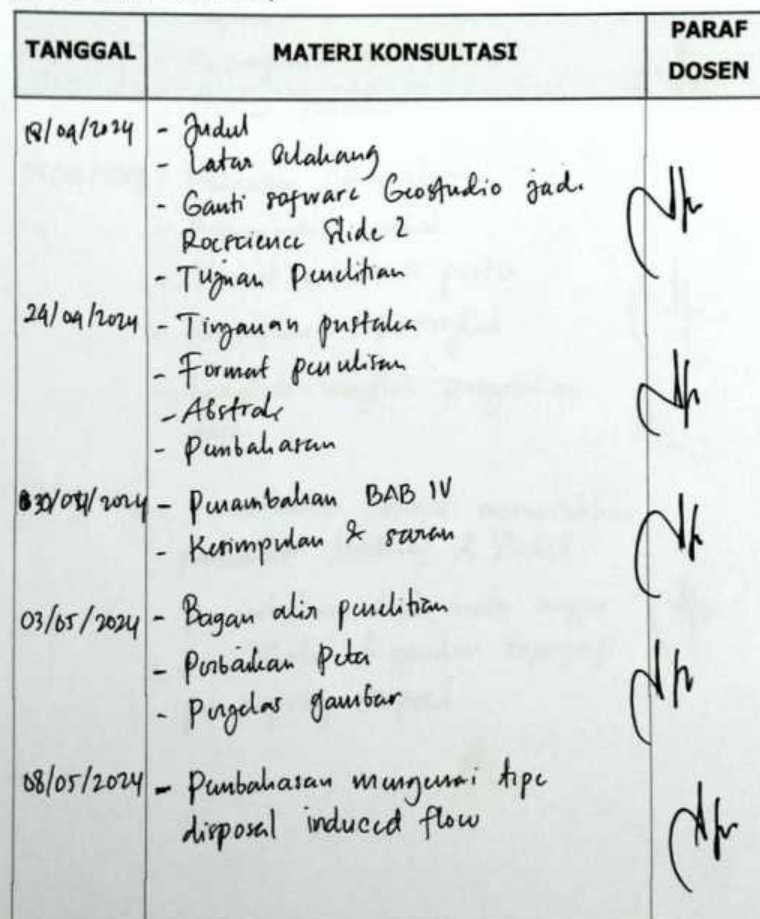 TANGGAL MATERI KONSULTASI PARAF DOSEN
18/04/2024 - Judul
- Latar Belakang
- Ganti sofware Geostudio jadi
Rocscience Slide 2
- Tujuan Penelitian
24/04/2024 - Tinjauan pustaka
- Format penulisan
- Abstrak
- Pembahasan
30/04/2024 - Penambahan BAB IV
- Kesimpulan & saran
03/05/2024 - Bagan alir penelitian
- Perbaikan Peta
- Perjelas gambar
08/05/2024 - Pembahasan mengenai tipe
disposal induced flow